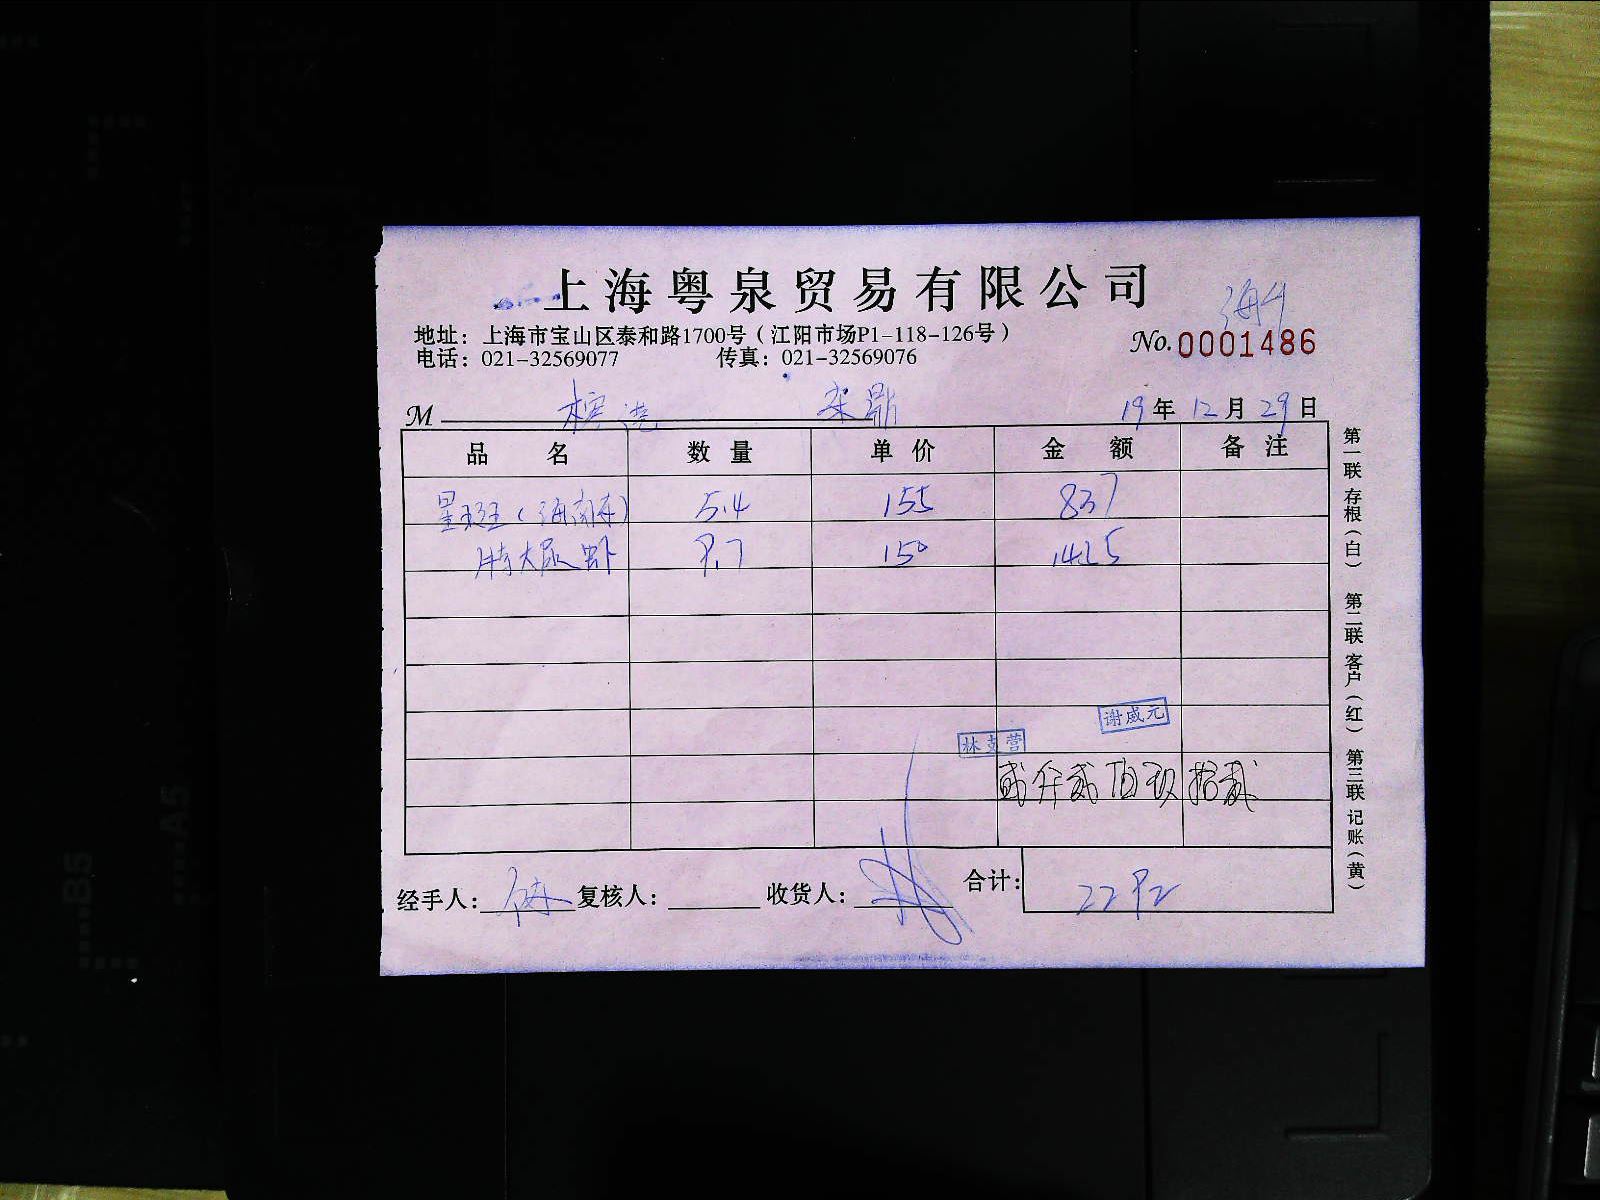 上海粤泉贸易有限公司
地址：上海市宝山区泰和路1700号（江阳市场P1-118-126号）
电话：021-32569077 传真：021-32569076
No.0001486
M 19年12月29日
品名 数量 单价 金额 备注
星斑（海南东） 5.4 155 837
特大尿虾 9.7 150 1425
谢威元
林支营
贰仟贰佰玖拾贰
经手人： 复核人： 收货人： 合计： 2292
第一联 存根（白） 第二联 客户（红） 第三联 记账（黄）
B5
A5